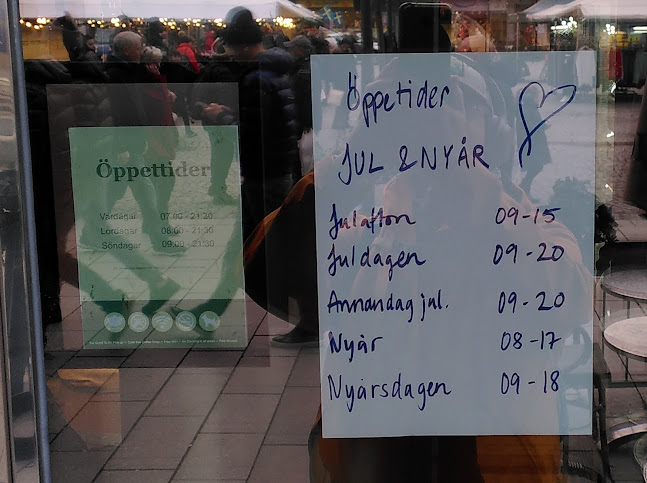 Öppettider
Vardagar 07.00 - 21.30
Lördagar 08.00 - 21.30
Söndagar 09.00 - 21.30
Öppetider
JUL & NYÅR
Julafton 09-15
Juldagen 09-20
Annandag jul. 09-20
Nyår 08-17
Nyårsdagen 09-18